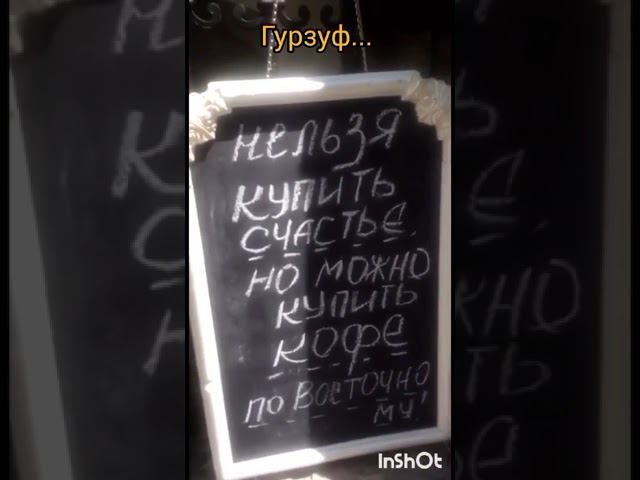 Гурзуф...
нельзя
купить
счастье,
но можно
купить
кофе
по Восточно
му!
InShOt